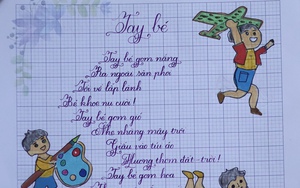 Tay bé
Tay bé gom nắng
Ra ngoài sân phơi
Tới về lấp lánh
Bé khoe nụ cười!
Tay bé gom gió
Nhẹ nhàng mây trôi
Giấu vào túi áo
Hương thơm đất - trời!
Tay bé gom hoa